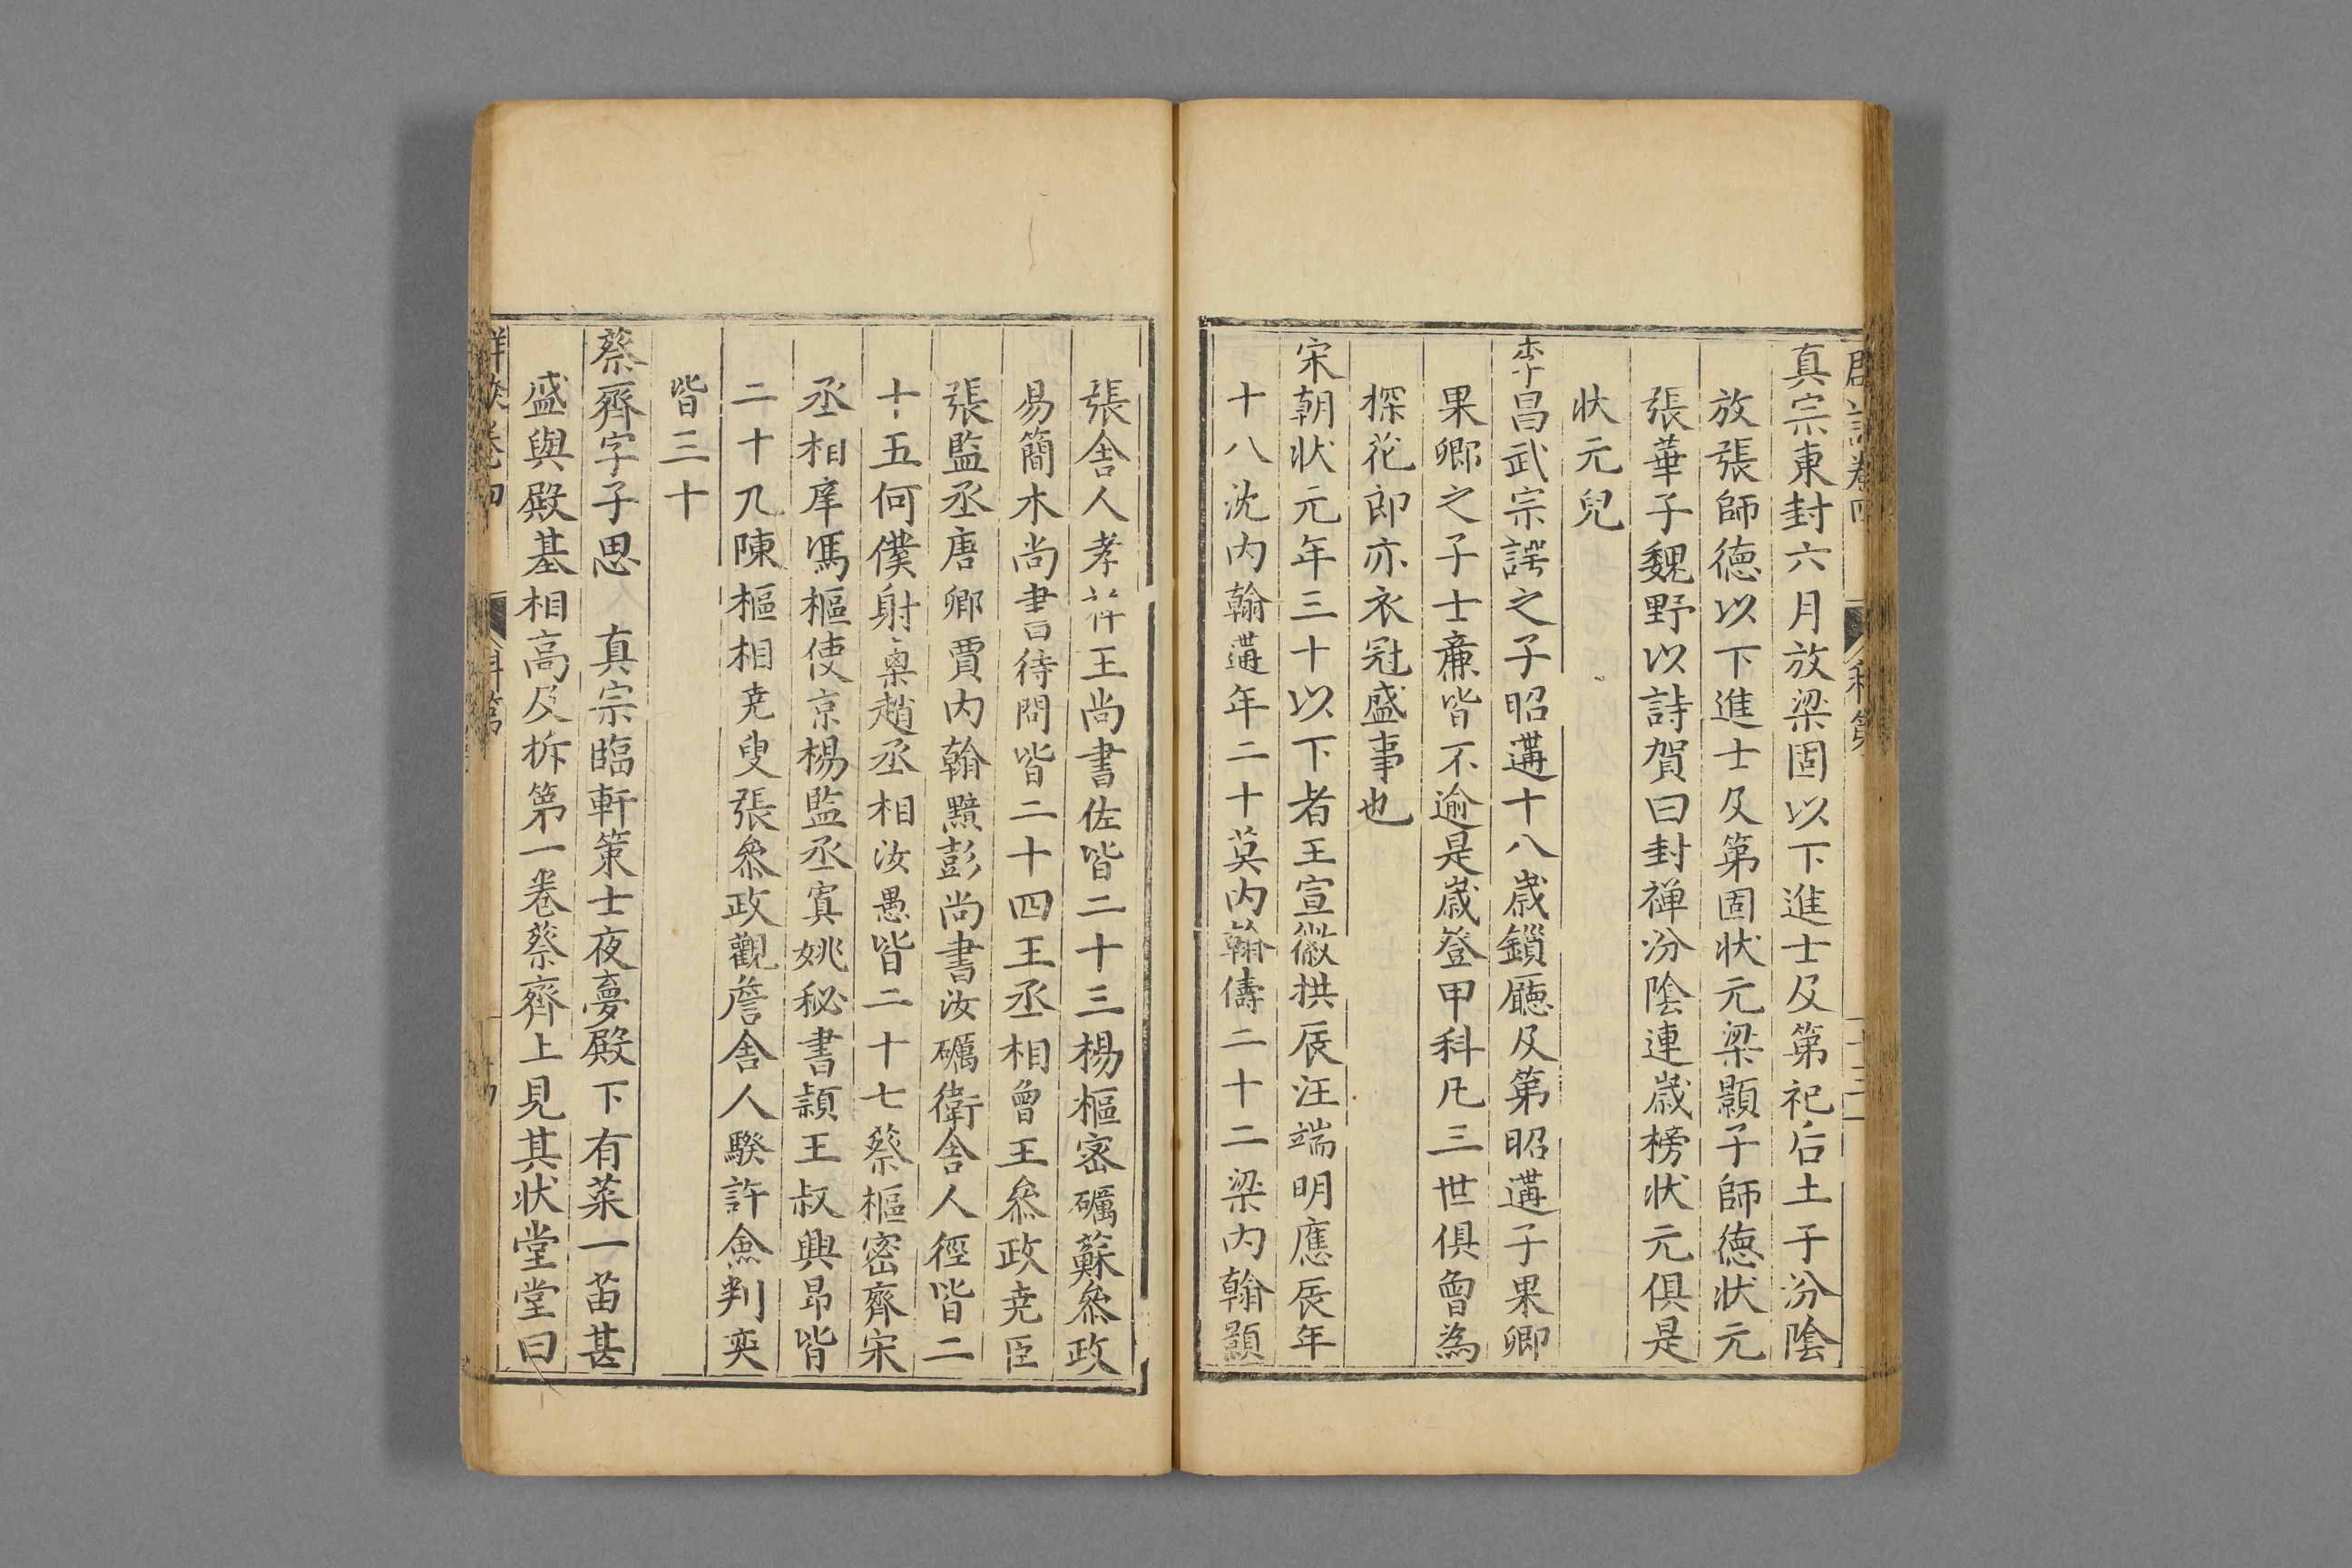 真宗東封六月放梁固以下進士及第祀后土于汾陰
放張師德以下進士及第固狀元梁顥子師德狀元
張華子魏野以詩賀曰封禅汾陰連歲榜狀元俱是
狀元兒
李昌武宗諤之子昭遘十八歲鎖廳及第昭遘子果卿
果卿之子士亷皆不逾是歲登甲科凡三世俱曾為
探花郎亦衣冠盛事也
宋朝狀元年三十以下者王宣徽拱辰汪端明應辰年
十八沈内翰遘年二十莫内翰儔二十二梁内翰顥
張舎人孝祥王尚書佐皆二十三楊樞密礪蘇叅政
易簡木尚書待問皆二十四王丞相曾王叅政堯臣
張監丞唐卿賈内翰黯彭尚書汝礪衛舎人徑皆二
十五何僕射㮚趙丞相汝愚皆二十七蔡樞密齊宋
丞相庠馮樞使京楊監丞寘姚秘書頴王叔興昂皆
二十九陳樞相堯叟張叅政觀詹舎人騤許僉判奕
皆三十
蔡齊字子思 真宗臨軒策士夜夢殿下有菜一苗甚
盛與殿基相高及拆第一卷蔡齊上見其狀堂堂曰